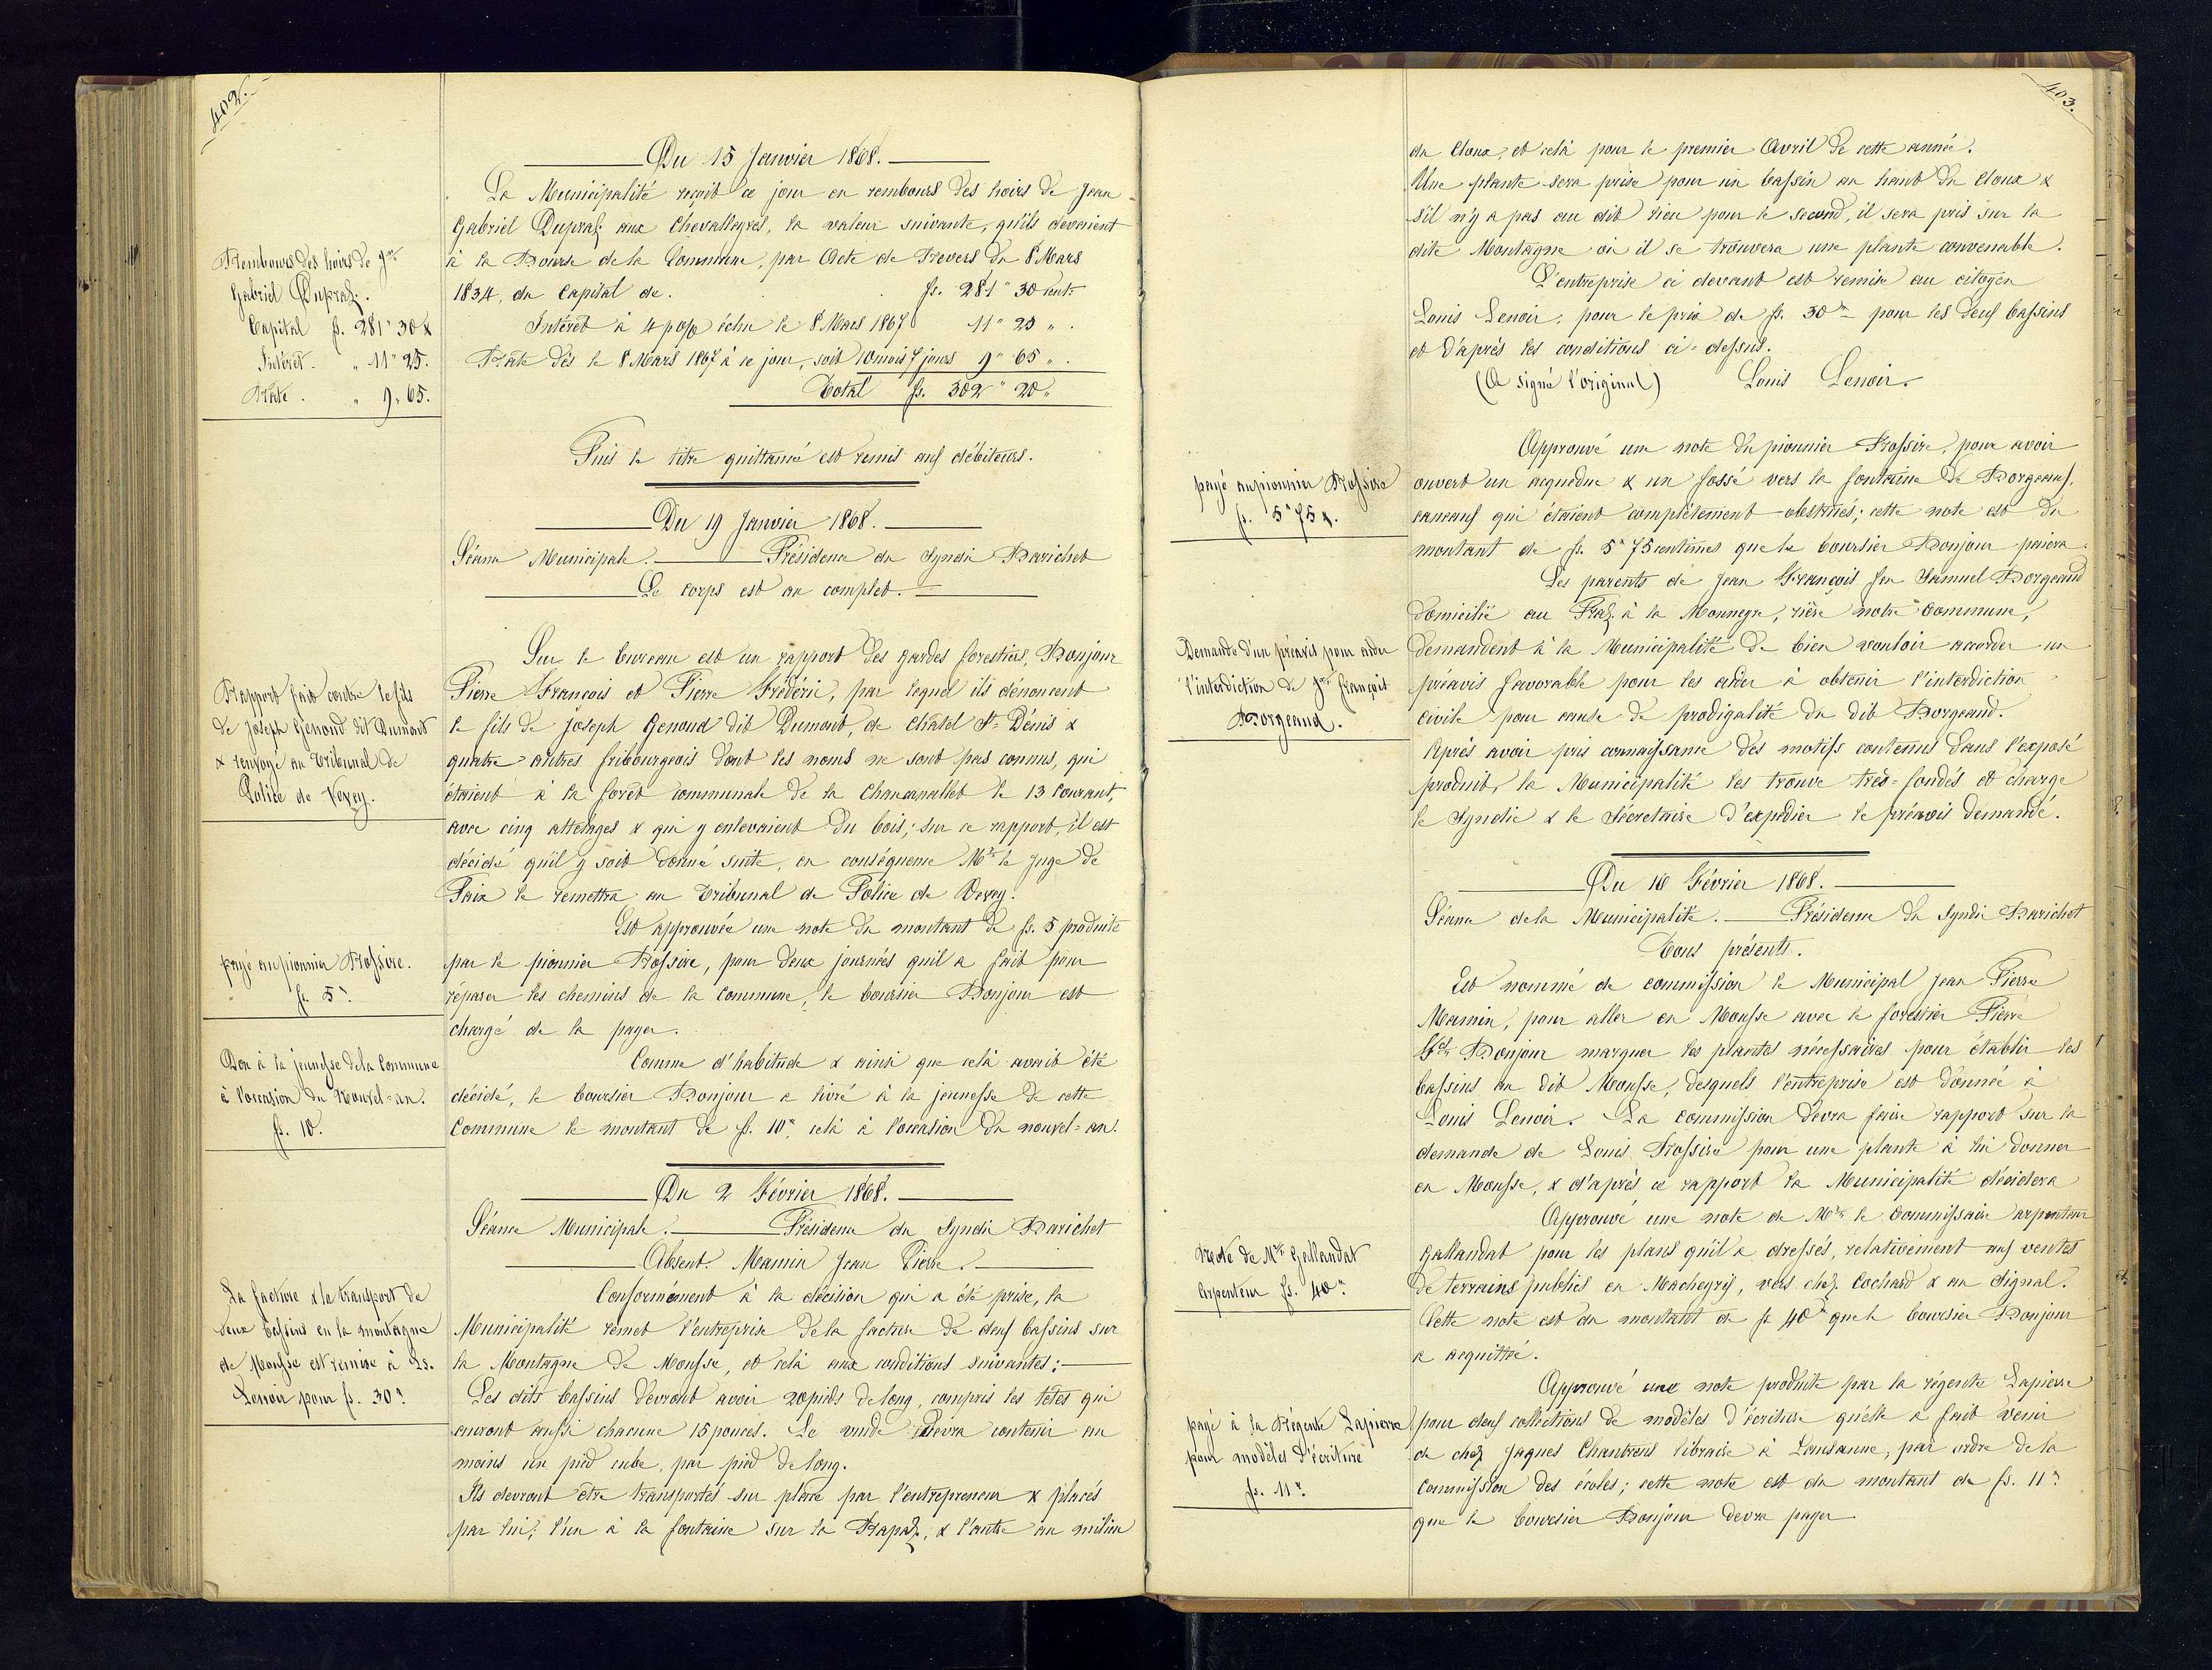 402.
Du 15 Janvier 1868.
La Municipalité reçoit ce jour en rembours des hoirs de Jean
Gabriel Dupraz aux Chevalleyres, la valeur suivante, qu'ils devenient
à la Bourse de la Commune, par Acte de Revers du 8 Mars
1834, du Capital de. fs. 281 " 30 cent:
Intérêt à 4 po% échu le 8 Mars 1867 11 " 25 " .
Rate dès le 8 Mars 1867 à ce jour, soit 10 mois 7 jours 9 " 65 " .
Total fs. 302 " 20 "
Rembours des hoirs de Jean
Gabriel Dupraz.
Capital fs. 281 " 30 &
Intérêt. " 11 " 25.
Rate. " 9 " 65.
Puis le titre quittancé est remis aux débiteurs.
Du 19 Janvier 1868.
Séance Municipale. Présidence du Syndic Barichet
Le corps est au complet.
Sur le bureau est un rapport des gardes forestiers, Bonjour
Pierre François et Pierre Frédéric, par lequel ils dénoncent
le fils de Joseph Genoud dit Dumont, de Chatel St. Dénis &
quatre autres fribourgeois dont les noms ne sont pas connus, qui
étaient à la forêt communale de la Chaucapallet le 13 Courant,
avec cinq attelages & qui y enlevaient du bois; sur ce rapport, il est
décidé qu'il y soit donné suite, en conséquence Mr. le Juge de
Paix le remettra au Tribunal de Police de Vevey.
Rapport fait contre le fils
de Joseph Genoud dit Dumont
& renvoyé au Tribunal de
Police de Vevey.
Est approuvée une note du montant de fs. 5 produite
par le pionnier Rossire, pour deux journées qu'il a fait pour
réparer les chemins de la Commune, le boursier Bonjour est
chargé de la payer.
payé au pionnier Rossire.
fs. 5 "
Comme d'habitude & ainsi que celà avait été
décidé, le boursier Bonjour a livré à la jeunesse de cette
Commune le montant de fs. 10 ", celà à l'occasion du nouvel-an.
Don à la jeunesse de la Commune
à l'occasion du Nouvel-an.
fs. 10.
Du 2 Février 1868.
Séance Municipale. Présidence du Syndic Barichet
Absent. Mamin Jean Pierre.
Conformément à la décision qui a été prise, la
Municipalité remet l'entreprise de la facture de deux bassins sur
la Montagne de Mousse, et celà aux conditions suivantes:
Les dits bassins devront avoir 20 pieds de long, compris les têtes qui
auront aussi chacune 15 pouces. Le vuide devra contenir au
moins un pied cube, par pied de long.
Ils devront être transportés sur place par l'entrepreneur & placés
par lui; l'un à la fontaine sur la Rapaz, & l'autre au milieu
La facture & le transport de
deux bassins en la montagne
de Mousse est remise à Ls.
Lenoir pour fs. 30 "
403.
du Cloux, et celà pour le premier Avril de cette année.
Une plante sera prise pour un bassin au haut du Cloux &
s'il n'y a pas au dit lieu pour le second, il sera pris sur la
dite Montagne où il se trouvera une plante convenable.
L'entreprise ci devant est remise au citoyen
Louis Lenoir, pour le prix de fs. 30 " pour les deux bassins
et d'après les conditions ci-dessus.
(A signé l'original) Louis Lenoir.
Approuvé une note du pionnier Rossire, pour avoir
ouvert un acqueduc & un fossé vers la fontaine de Borgeaux,
canaux qui étaient complètement obstrués; cette note est du
montant de fs. 5 " 75 centimes que le boursier Bonjour paiera.
payé au pionnier Rossire
fs. 5 " 75 &.
Les parents de Jean François feu Samuel Borgeaud
domicilié au Praz à la Monnegre, rière notre Commune,
demandent à la Municipalité de bien vouloir accorder un
préavis favorable pour les aider à obtenir l'interdiction
civile pour cause de prodigalité du dit Borgeaud.
Après avoir pris connaissance des motifs contenus dans l'exposé
produit, la Municipalité les trouve très-fondés et charge
le Syndic & le Sécretaire d'expédier le préavis demandé.
Demande d'un préavis pour aider
l'interdiction de Jean François
Borgeaud.
Du 16 Février 1868.
Séance de la Municipalité. Présidence du Syndic Barichet
Tous présents.
Est nommé de commission le Municipal Jean Pierre
Mamin, pour aller en Mousse avec le forestier Pierre
Fçs. Bonjour marquer les plantes nécessaires pour établir les
bassins au dit Mousse, desquels l'entreprise est donnée à
Louis Lenoir. La commission devra faire rapport sur la
demande de Louis Rossire pour une plante à lui donner
en Mousse, & d'après ce rapport la Municipalité décidera
Approuvé une note de Mr. le Commissaire arpenteur
Gallandat pour les plans qu'il a dressés, relativement aux ventes
de terrains publics en Macheyris, vers chez Cochard & au Signal.
Cette note est du montant de fs 40 " que le boursier Bonjour
a acquittée.
Note de Mr. Gallandat
Arpenteur fs. 40 "
Approuvé une note produite par la régente Lapierre
pour deux collections de modèles d'écriture qu'elle a fait venir
de chez Jaques Chantrens libraire à Lausanne, par ordre de la
Commission des écoles; cette note est du montant de fs. 11 "
que le boursier Bonjour devra payer
payé à la Régente Lapierre
pour modèles d'écriture
fs. 11 "